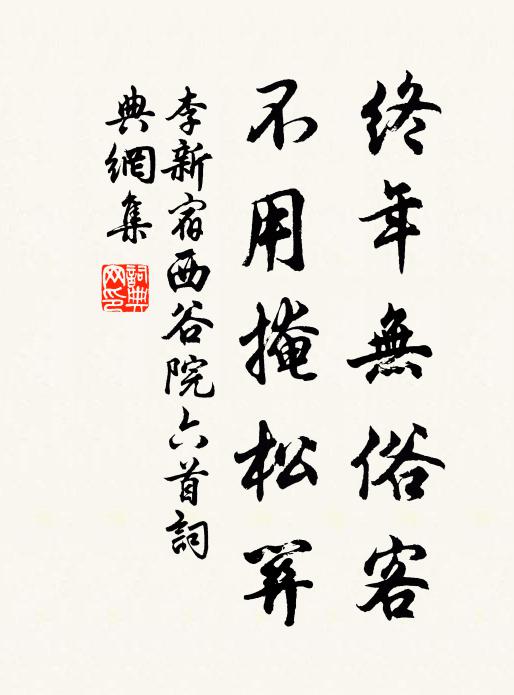 終年無俗客
不用掩松關
李新宿西谷院六首詞
典網集
詞典網印